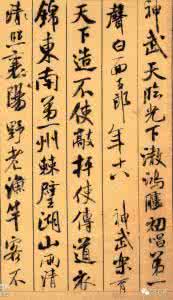 神武天臨光下澈鴻臚初唱第一
聲白面玉郎年十八 神武樂育
天下造不使敲枰使傳道衣
錦東南第一州棘璧湖山兩清
清照襄陽野老漁竿客不